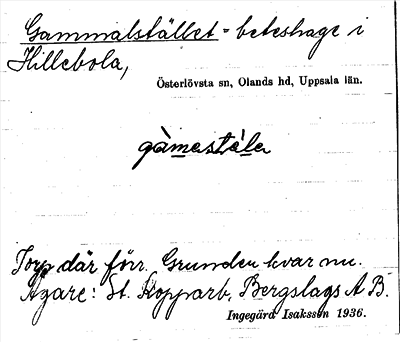 Gammalstället - beteshage i
Hillebola,
Österlövsta sn, Olands hd, Uppsala län.
gàmestä́le
Torp där förr. Grunden kvar nu.
Ägare: St. Kopparb. Bergslags A B.
Ingegärd Isaksson 1936.